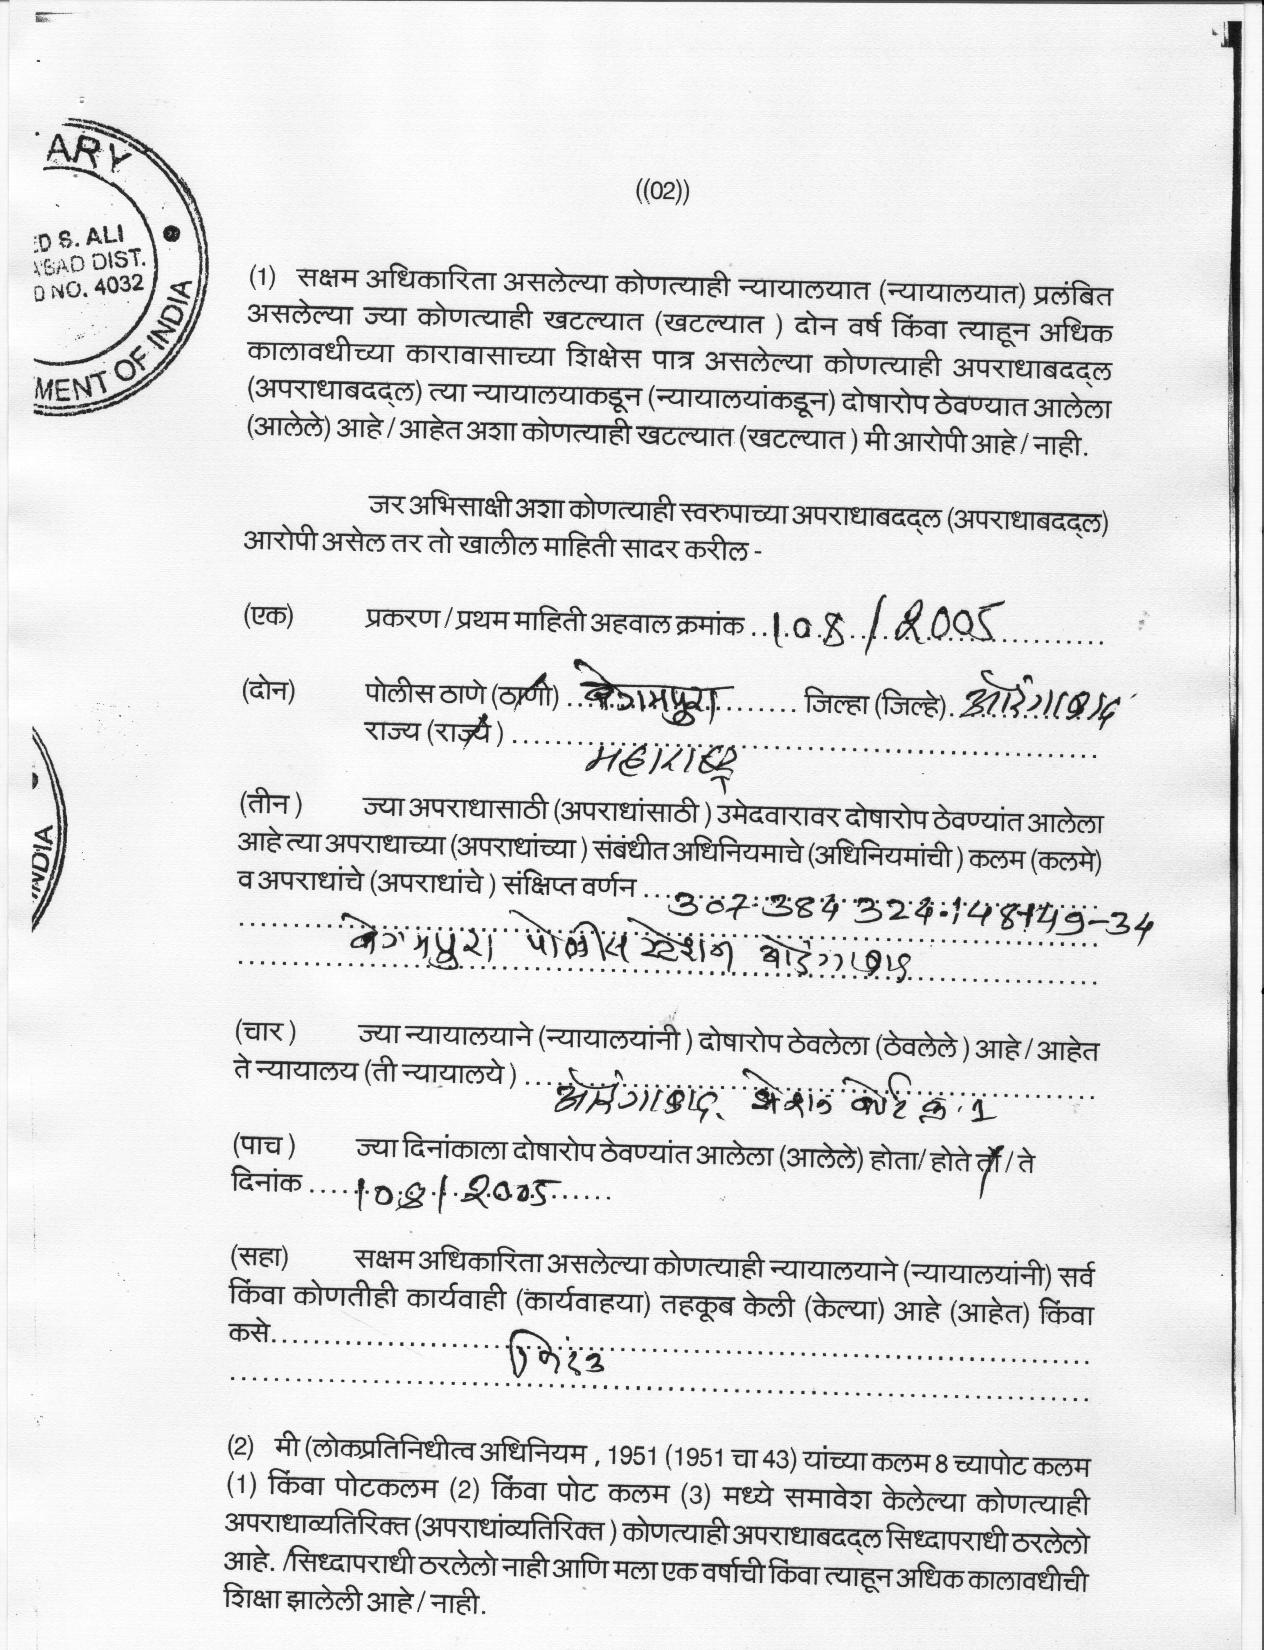 ARY
S. ALI
BAD DIST.
NO. 4032
MENT OF INDIA
((02))
(1) सक्षम अधिकारिता असलेल्या कोणत्याही न्यायालयात (न्यायालयात) प्रलंबित
असलेल्या ज्या कोणत्याही खटल्यात (खटल्यात ) दोन वर्ष किंवा त्याहून अधिक
कालावधीच्या कारावासाच्या शिक्षेस पात्र असलेल्या कोणत्याही अपराधाबदद्ल
(अपराधाबदद्ल) त्या न्यायालयाकडून (न्यायालयांकडून) दोषारोप ठेवण्यात आलेला
(आलेले) आहे / आहेत अशा कोणत्याही खटल्यात (खटल्यात ) मी आरोपी आहे / नाही.
जर अभिसाक्षी अशा कोणत्याही स्वरुपाच्या अपराधाबदद्ल (अपराधाबदद्ल)
आरोपी असेल तर तो खालील माहिती सादर करील -
(एक) प्रकरण / प्रथम माहिती अहवाल क्रमांक 108/2005
(दोन) पोलीस ठाणे (ठाणी) बेगमपुरा जिल्हा (जिल्हे). औरंगाबाद
राज्य (राज्ये ) महाराष्ट्र
(तीन ) ज्या अपराधासाठी (अपराधांसाठी ) उमेदवारावर दोषारोप ठेवण्यांत आलेला
आहे त्या अपराधाच्या (अपराधांच्या ) संबंधीत अधिनियमाचे (अधिनियमांची ) कलम (कलमे)
व अपराधांचे (अपराधांचे ) संक्षिप्त वर्णन 307.384 324.148+149-34
बेगमपुरा पोलीस स्टेशन औरंगाबाद
(चार ) ज्या न्यायालयाने (न्यायालयांनी ) दोषारोप ठेवलेला (ठेवलेले ) आहे / आहेत
ते न्यायालय (ती न्यायालये ) औरंगाबाद. शेशन कोर्ट क्र. 1
(पाच ) ज्या दिनांकाला दोषारोप ठेवण्यांत आलेला (आलेले) होता/ होते तो / ते
दिनांक 108/2005
(सहा) सक्षम अधिकारिता असलेल्या कोणत्याही न्यायालयाने (न्यायालयांनी) सर्व
किंवा कोणतीही कार्यवाही (कार्यवाहया) तहकूब केली (केल्या) आहे (आहेत) किंवा
कसे
(2) मी (लोकप्रतिनिधीत्व अधिनियम , 1951 (1951 चा 43) यांच्या कलम 8 च्यापोट कलम
(1) किंवा पोटकलम (2) किंवा पोट कलम (3) मध्ये समावेश केलेल्या कोणत्याही
अपराधाव्यतिरिक्त (अपराधांव्यतिरिक्त ) कोणत्याही अपराधाबदद्ल सिध्दापराधी ठरलेलो
आहे. /सिध्दापराधी ठरलेलो नाही आणि मला एक वर्षाची किंवा त्याहून अधिक कालावधीची
शिक्षा झालेली आहे / नाही.
INDIA